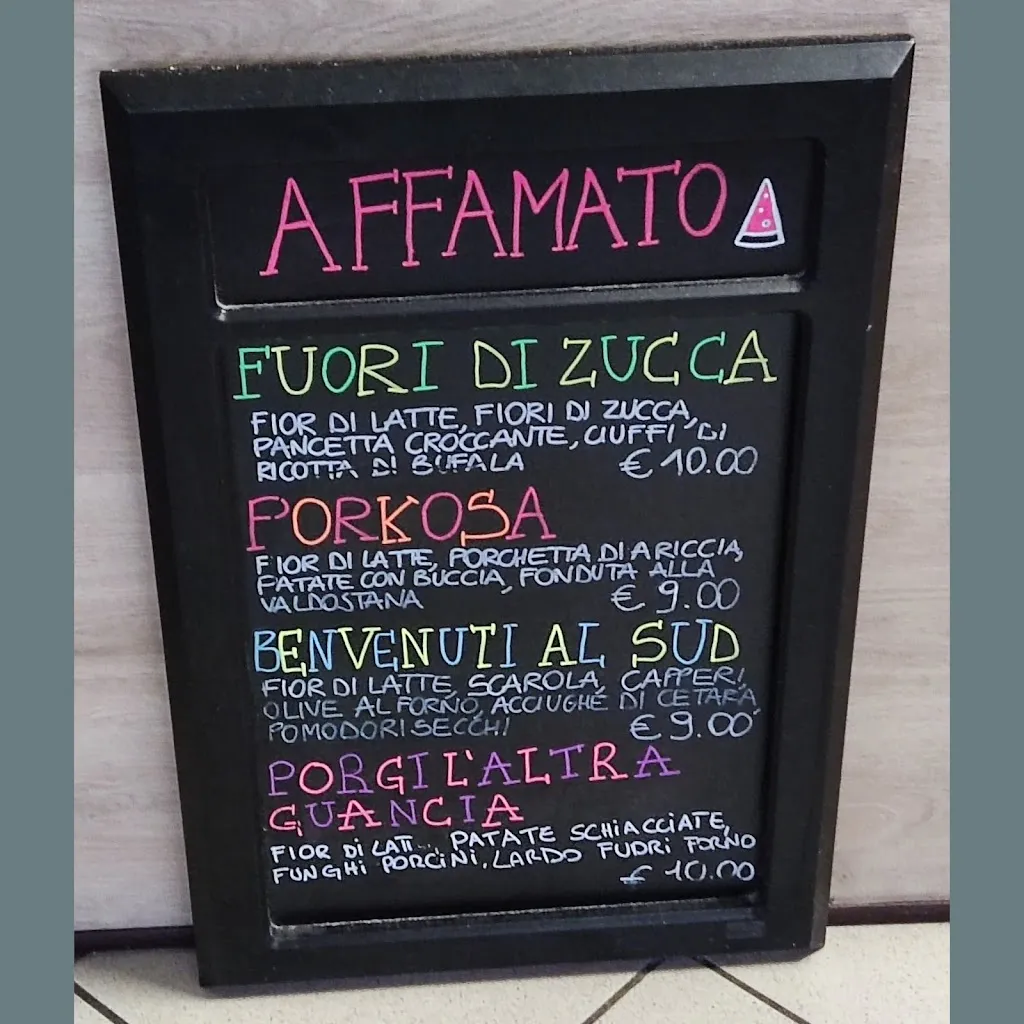 AFFAMATO
FUORI DI ZUCCA
FIOR DI LATTE, FIORI DI ZUCCA,
PANCETTA CROCCANTE, CIUFFI DI
RICOTTA DI BUFALA € 10.00
PORKOSA
FIOR DI LATTE, PORCHETTA DI ARICCIA,
PATATE CON BUCCIA, FONDUTA ALLA
VALDOSTANA € 9.00
BENVENUTI AL SUD
FIOR DI LATTE, SCAROLA, CAPPERI,
OLIVE AL FORNO, ACCIUGHE DI CETARA
POMODORI SECCHI € 9.00
PORGI L'ALTRA
GUANCIA
FIOR DI PATATE SCHIACCIATE,
FUNGHI PORCINI, LARDO FUORI FORNO
€ 10.00